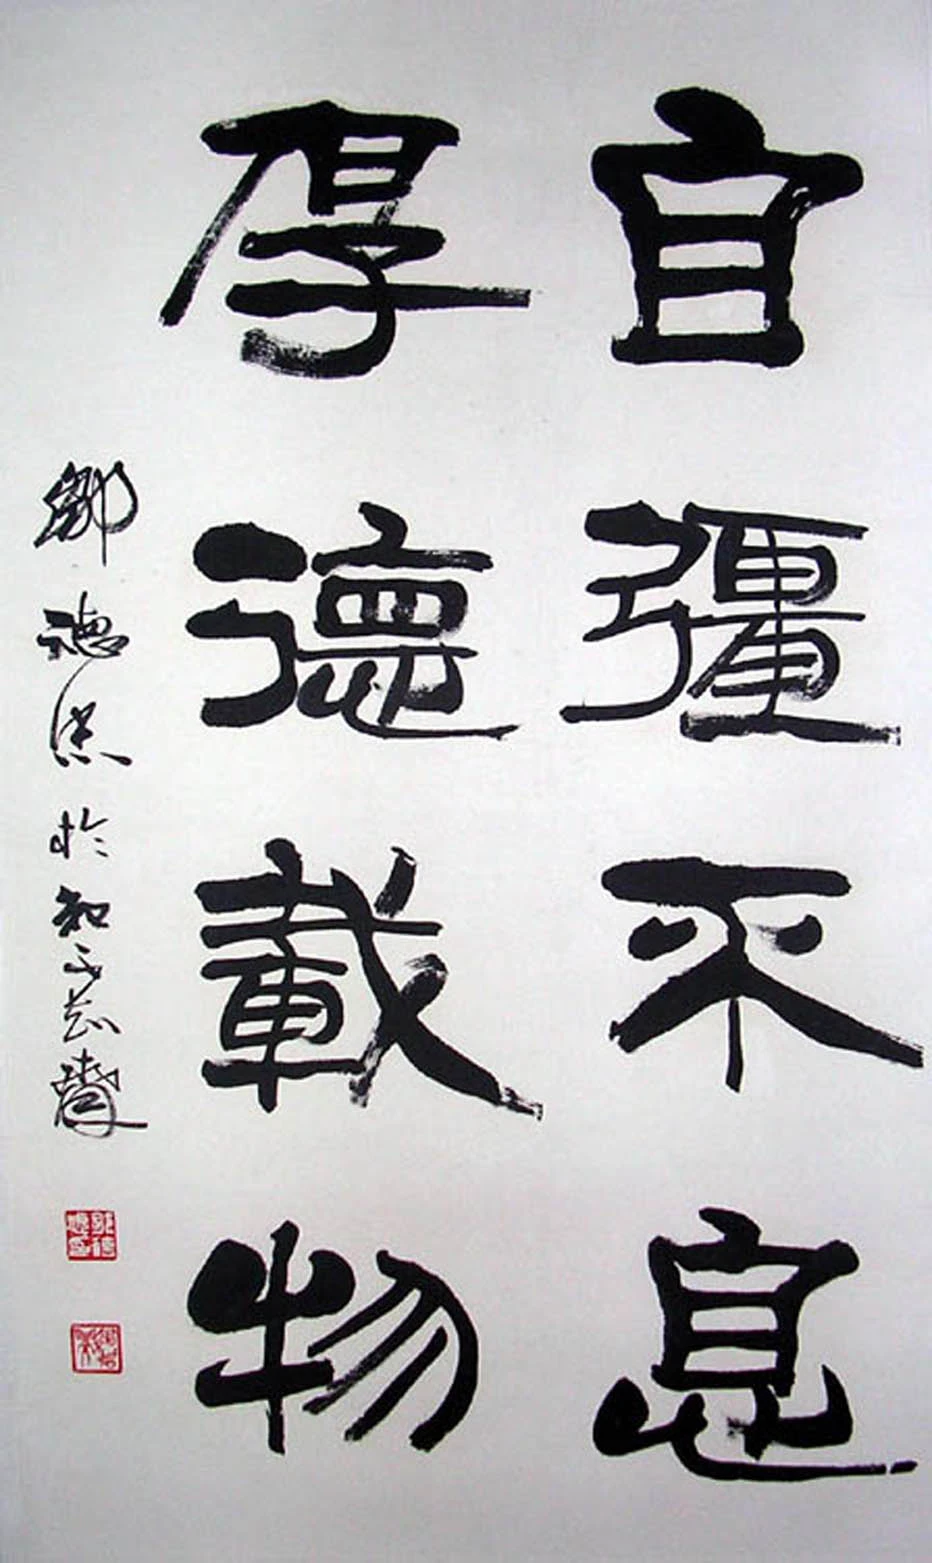 自彊不息
厚德載物
鄧德忠於知不足齋